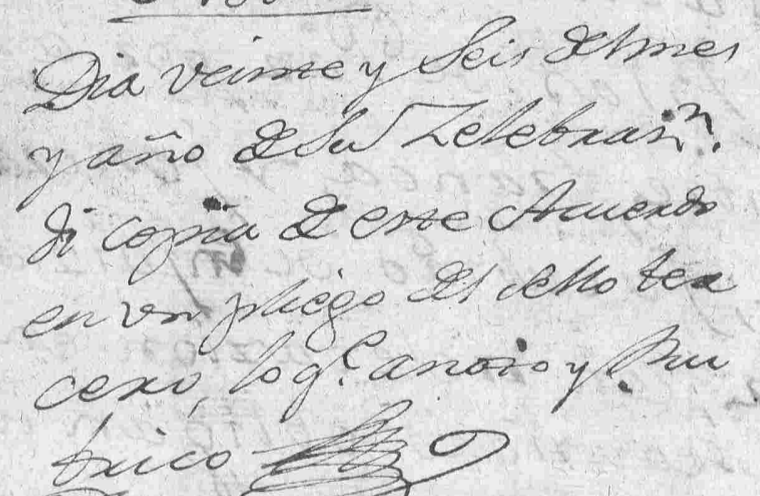 Dia veinte y Seis del mes
y año de Su Zelebrasn.
di copia de este Acuerdo
en un pliego del sello ter
cero, lo q.e anoto y Ru
brico